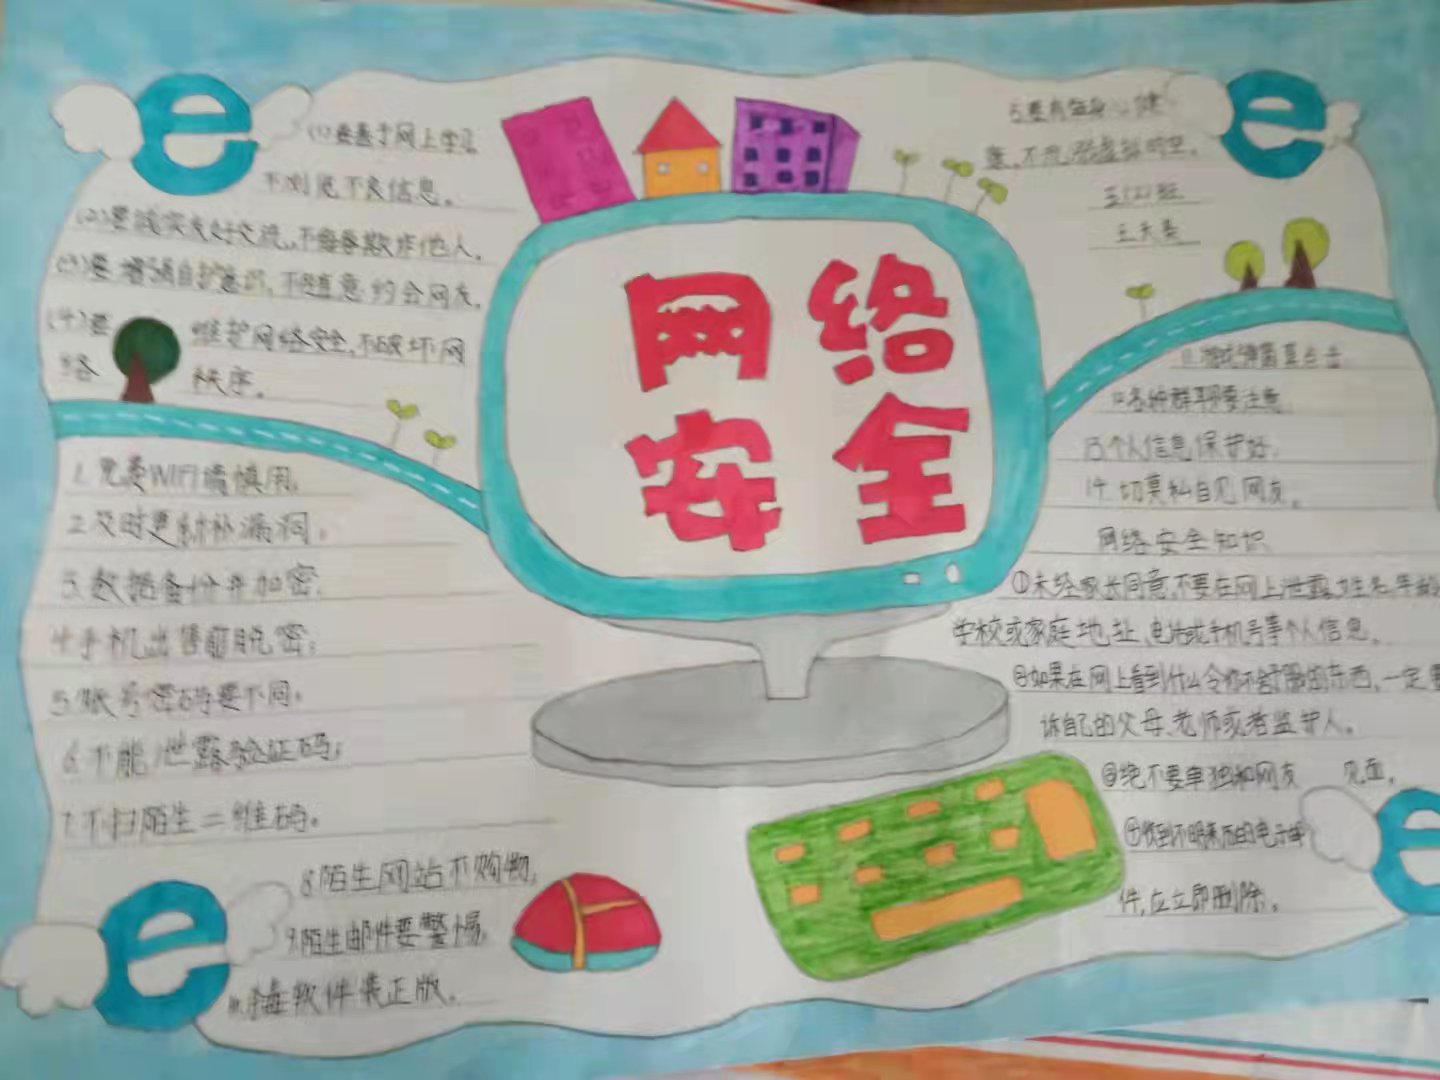 网络
安全
(1)要善于网上学习
不浏览不良信息。
(2)要诚实友好交流,不侮辱欺诈他人。
(3)要增强自护意识,不随意约会网友。
(4)要维护网络安全,不破坏网
络秩序。
5要有益身心健
康,不沉溺虚拟时空。
五(2)班
1.免费WIFI请慎用;
2.及时更新补漏洞;
3.数据备份并加密;
4.手机出售前脱密;
5.账号密码要不同;
6.不能泄露验证码;
7.不扫陌生二维码。
8.陌生网站不购物;
9.陌生邮件要警惕;
10.毒软件装正版。
11.
12各种群聊要注意
13个人信息保护好;
14.切莫私自见网友。
网络安全知识
①未经家长同意,不要在网上泄露姓名、年龄
学校或家庭地址、电话或手机号等个人信息。
②如果在网上看到什么令你不舒服的东西,一定要
诉自己的父母、老师或者监护人。
③绝不要单独和网友见面。
④收到不明来历的电子邮
件,应立即删除。